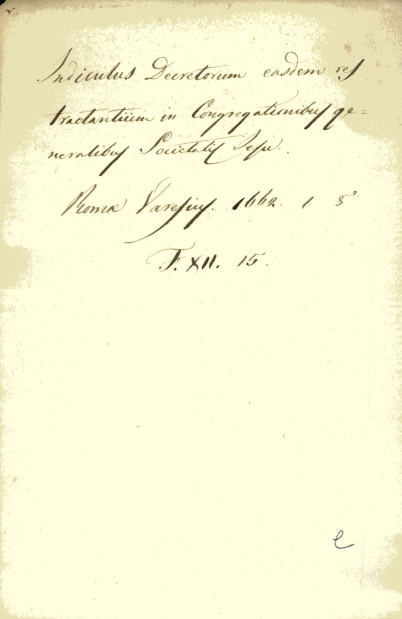 Indiculus Decretorum easdem res
tractantium in Congregationibus ge=
neralibus Societatis Jesu.
Romæ Varesius. 1662. 1. 8°
F. XII. 15.
e